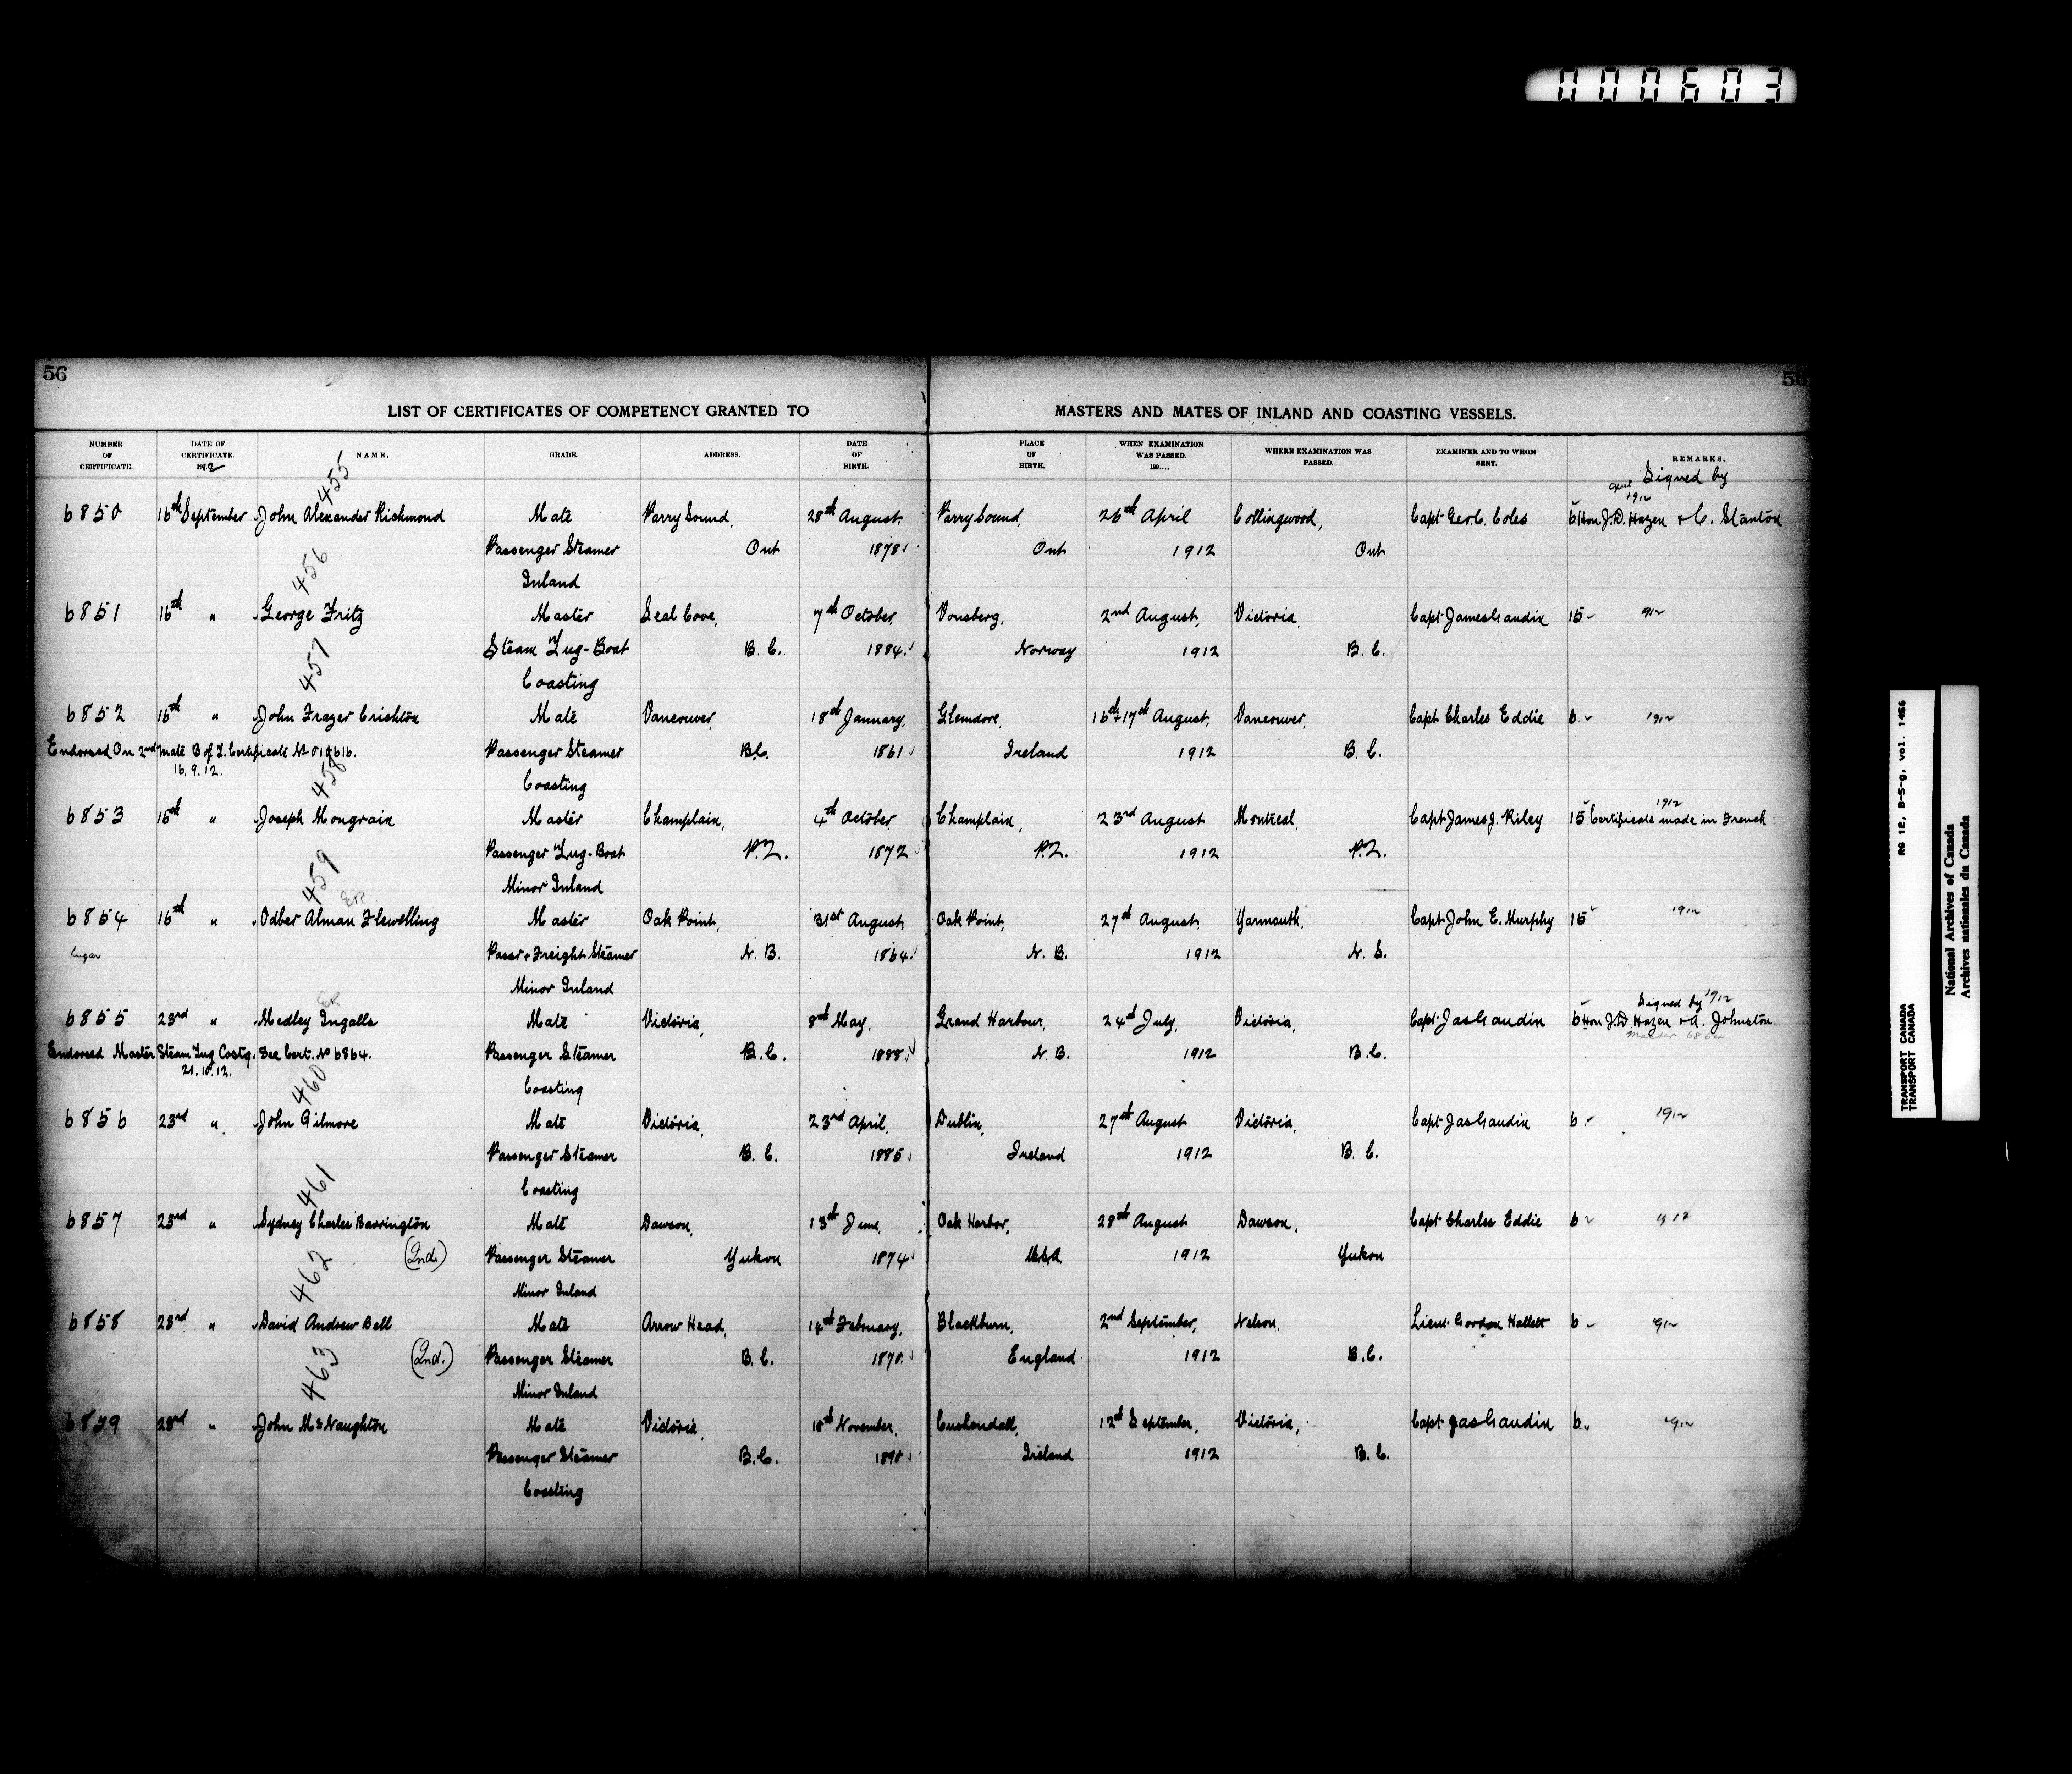 000603
56
56
LIST OF CERTIFICATES OF COMPETENCY GRANTED TO MASTERS AND MATES OF INLAND AND COASTING VESSELS.
NUMBER OF CERTIFICATE. DATE OF CERTIFICATE. 1912 NAME. GRADE. ADDRESS. DATE OF BIRTH. PLACE OF BIRTH. WHEN EXAMINATION WAS PASSED. 190.... WHERE EXAMINATION WAS PASSED. EXAMINER AND TO WHOM SENT. REMARKS.
455 Signed by
1912
6850 16th September John Alexander Richmond Mate Parry Sound, 28th August. Parry Sound, 26th April Collingwood, Capt Geo. C. Coles 6 Hon. J.D. Hazen & C. Stanton
Passenger Steamer Ont 1878 Ont 1912 Ont
456 Inland
6851 16th " George Fritz Master Seal Cove, 7th October, Vonsberg, 2nd August, Victoria, Capt James Gaudin 15 - 912
Steam Tug-Boat B.C. 1884. Norway 1912 B.C.
457 Coasting
6852 16th " John Frazer Crichton Mate Vancouver, 18th January, Glemdore, 16th & 17th August, Vancouver, Capt Charles Eddie 6 - 1912
Endorsed On 2nd Mate B of T. Certificate No 019616. Passenger Steamer B.C. 1861 Ireland 1912 B.C.
16.9.12. 458 Coasting
1912
6853 16th " Joseph Mongrain Master Champlain, 4th October, Champlain, 23rd August Montreal, Capt James J. Riley 15 Certificate made in French
Passenger Tug-Boat P.Q. 1872 P.Q. 1912 P.Q.
459 Minor Inland
6854 16th " Odber Alman Flewelling Master Oak Point, 31st August Oak Point, 27th August. Yarmouth, Capt John E. Murphy 15 1912
Passr & Freight Steamer N.B. 1864. N.B. 1912 N.S.
Minor Inland
Signed by 1912
6855 23rd " Medley Ingalls Mate Victoria, 8th May, Grand Harbour, 24th July, Victoria, Capt Jas Gaudin 6 Hon J.D. Hazen & A. Johnston
Master 6864
Endorsed Master Steam Tug Costg. See Cert. No 6864. Passenger Steamer B.C. 1888 N.B. 1912 B.C.
21.10.12. 460 Coasting
6856 23rd " John Gilmore Mate Victoria, 23rd April, Dublin, 27th August Victoria, Capt Jas Gaudin 6 - 1912
Passenger Steamer B.C. 1885 Ireland 1912 B.C.
461 Coasting
6857 23rd " Sydney Charles Barrington Mate Dawson, 13th June, Oak Harbor, 28th August Dawson, Capt Charles Eddie 6 - 1912
(2nd.) Passenger Steamer Yukon 1874 U.S.A. 1912 Yukon
462 Minor Inland
6858 23rd " David Andrew Bell Mate Arrow Head, 14th February, Blackburn, 2nd September, Nelson, Lieut Gordon Hallett 6 - 912
(2nd.) Passenger Steamer B.C. 1870. England 1912 B.C.
463 Minor Inland
6859 23rd " John McNaughton Mate Victoria, 10th November, Cushendall, 12th September, Victoria, Capt Jas Gaudin 6 - 1912
Passenger Steamer B.C. 1890 Ireland 1912 B.C.
Coasting
RG 12, B-5-g, vol. 1456
TRANSPORT CANADA
TRANSPORT CANADA
National Archives of Canada
Archives nationales du Canada